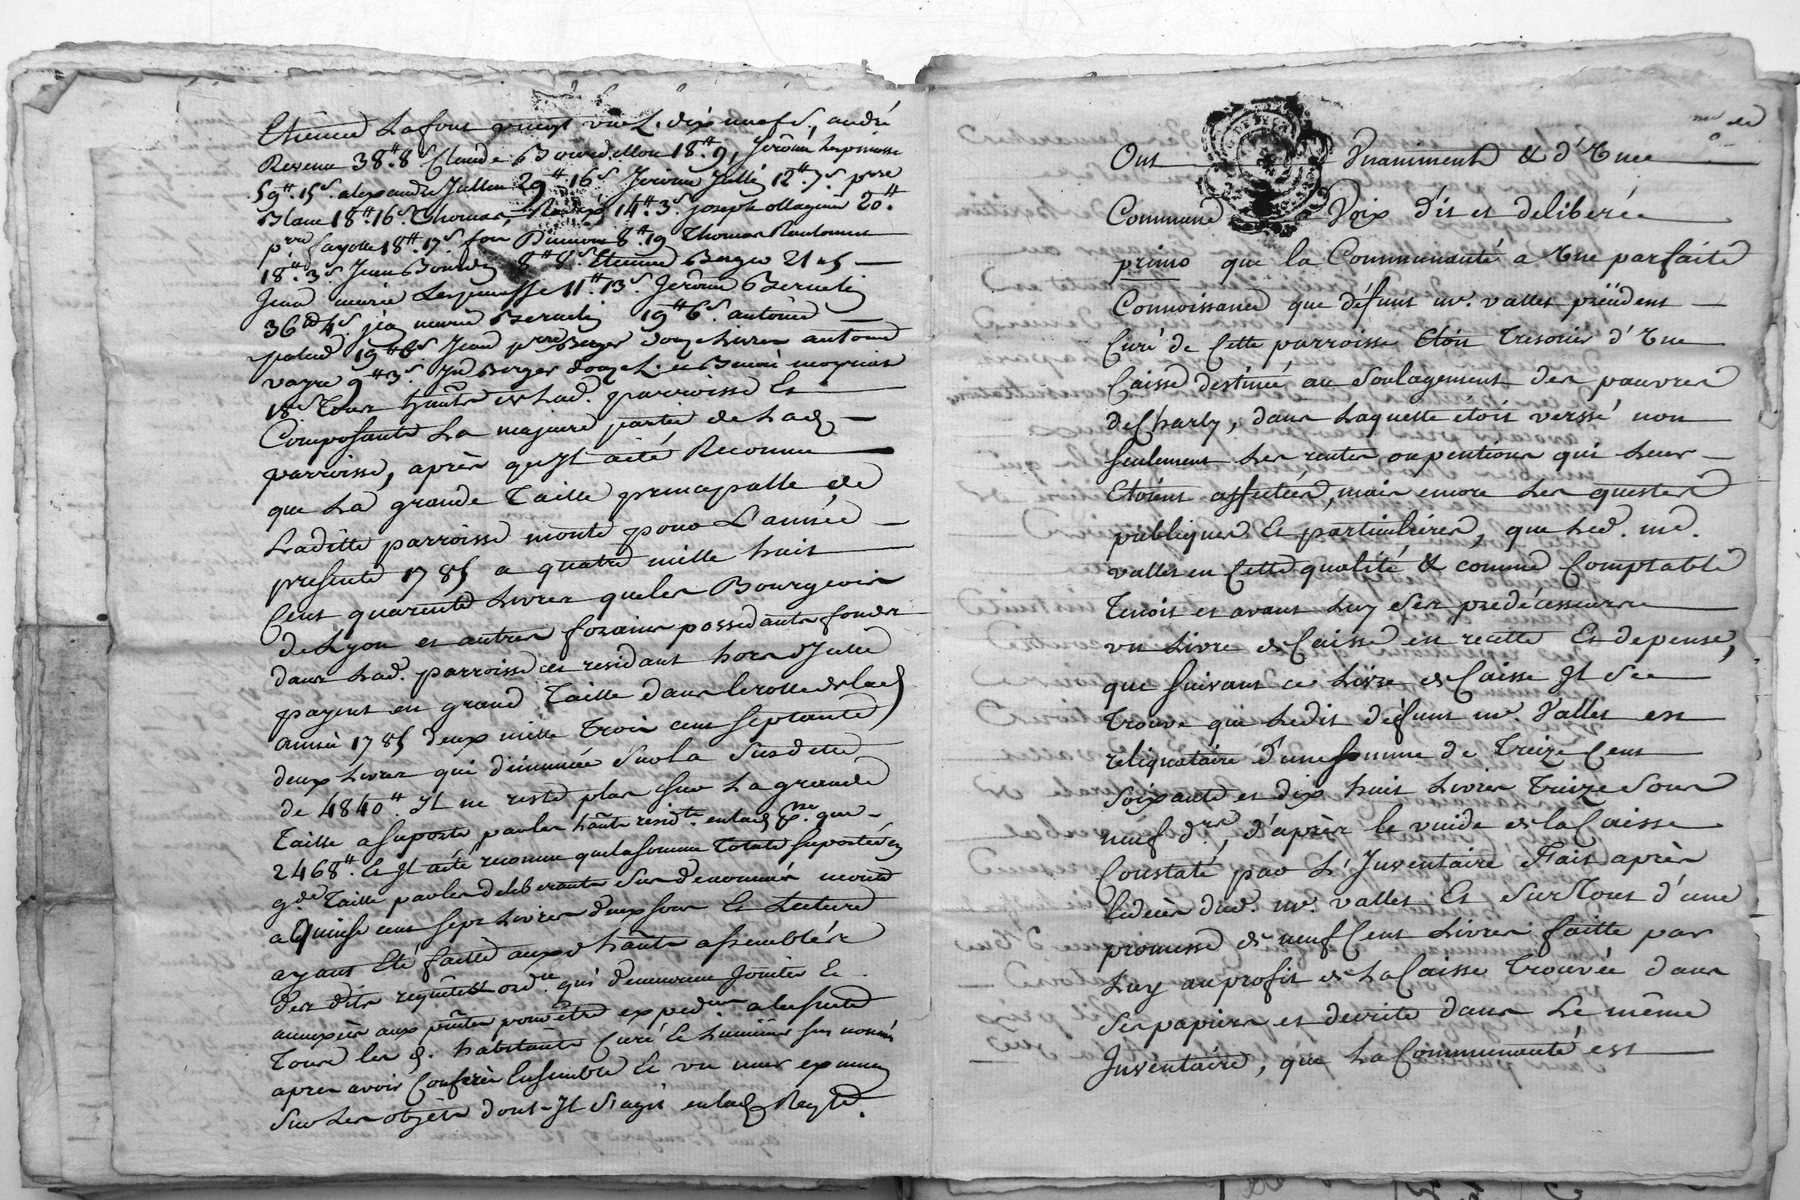 Etienne Lafont vingt une L. dix neuf s. andré
Revenu 38ᵗᵗ 8ˢ Claude Bourdillon 18ᵗᵗ 9, Jerôme Lespinasse
59ᵗᵗ 15ˢ alexandre Jullien 29ᵗᵗ 16ˢ Jerôme Jullié 12ᵗᵗ 7ˢ pʳʳᵉ
Blanc 18ᵗᵗ 16ˢ Thomas 14ᵗᵗ 3ˢ joseph ollagnier 20ᵗᵗ
pʳʳᵉ fayolle 18ᵗᵗ 17ˢ 8ᵗᵗ 19 Thomas
18ᵗᵗ 3ˢ Jean Bourdin 8ᵗᵗ 8ˢ Etienne Berger 21 5
Jean marie Lespinasse 11ᵗᵗ 13ˢ Jerôme
36ᵗᵗ 4ˢ jean marie 19ᵗᵗ 6ˢ antoine
19ᵗᵗ 6ˢ Jean pʳʳᵉ Berger douze Livres antoine
vayre 9ᵗᵗ 3ˢ Jⁿ Berger douze L. et Benoit
18ˢ Tous hânts de Lad. parroisse Et
Composants La majeure partie de Lad.
parroisse, après qu'Jl a été Reconnu
que La grande Taille principalle de
Laditte parroisse monte pour L'année
presente 1785 a quatre mille huit
Cent quarente Livres que les Bourgeois
de Lyon et autres forains possedants fonds
dans Lad. parroisse et residant hors d'Jcelle
payent en grand Taille dans le rolle de lad.
année 1785 deux mille Trois cent septante
deux Livres qui diminuée sur la susditte
de 4840ᵗᵗ Jl ne reste plus sur La grande
Taille a suporter par les hânts résidᵗˢ en lad. pˢˢᵉ que
2468ᵗᵗ. Et Jl a été reconnu que la somme Totale suportée en
gᵈᵉ Taille par les deliberants sus denommés monte
a Quinse cent sept Livres deux sous Et Lecture
ayant Eté faitte auxd. hânts assemblés
des dits requête et ordᶜᵉ qui demeureront Jointes Et
annexées aux pñtes pour être expedᵉᵉˢ a la suitte
Tous les d. habitants Curé Et Luminier sus nommés
apres avoir Conferés Ensemble Et vu mur examen
Sur Les objets dont Jl s'agit en lad. Reqte.
Ont Vnaniment & d'Vne
Commune Voix dit et deliberé
primo que la Communauté a Vne parfaite
Connoissance que défunt mʳ. vallet précédent
Curé de Cette parroisse Etoit Tresorier d'Vne
Caisse destinée au Soulagement des pauvres
de Charly, dans Laquelle étoit versé non
seulement Les rentes ou pentions qui Leur
Etoient affectées, mais encore Les questes
publiques Et particulieres, que Led. mʳ.
vallet en Cette qualité & comme Comptable
Tenoit et avant Luy Ses predécesseurs
un Livre de Caisse en recette Et depense,
que suivant ce Livre de Caisse Jl se
Trouve que Ledit défunt mʳ. Vallet est
reliquataire d'une somme de Treize Cent
Soixante et dix huit Livres Treize Sous
neuf dʳˢ, d'après le vuide de la Caisse
Constaté par L'Jnventaire Fait après
Le deces dud. mʳ. vallet Et Sur Tout d'une
promesse de neuf Cent Livres faitte par
Luy au profit de La Caisse Trouvée dans
Ses papiers et decrite dans Le même
Jnventaire, que La Communauté est